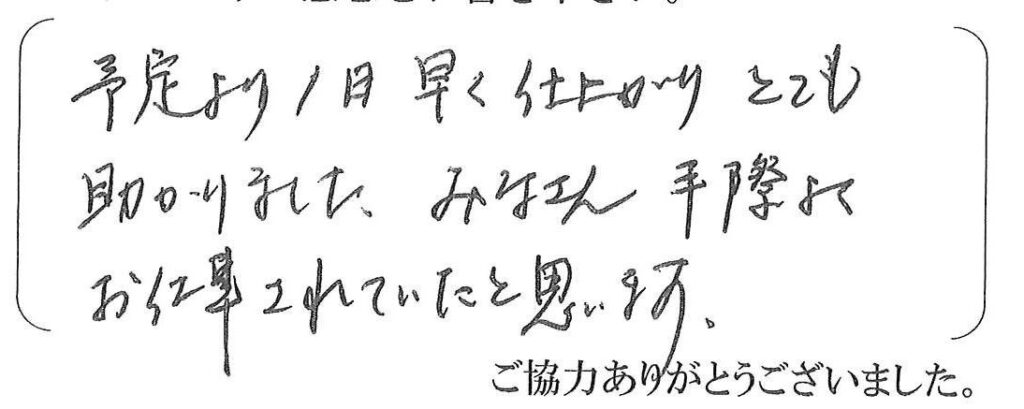 予定より1日早く仕上がりとても
助かりました。みなさん手際よく
お仕事されていたと思います。
ご協力ありがとうございました。